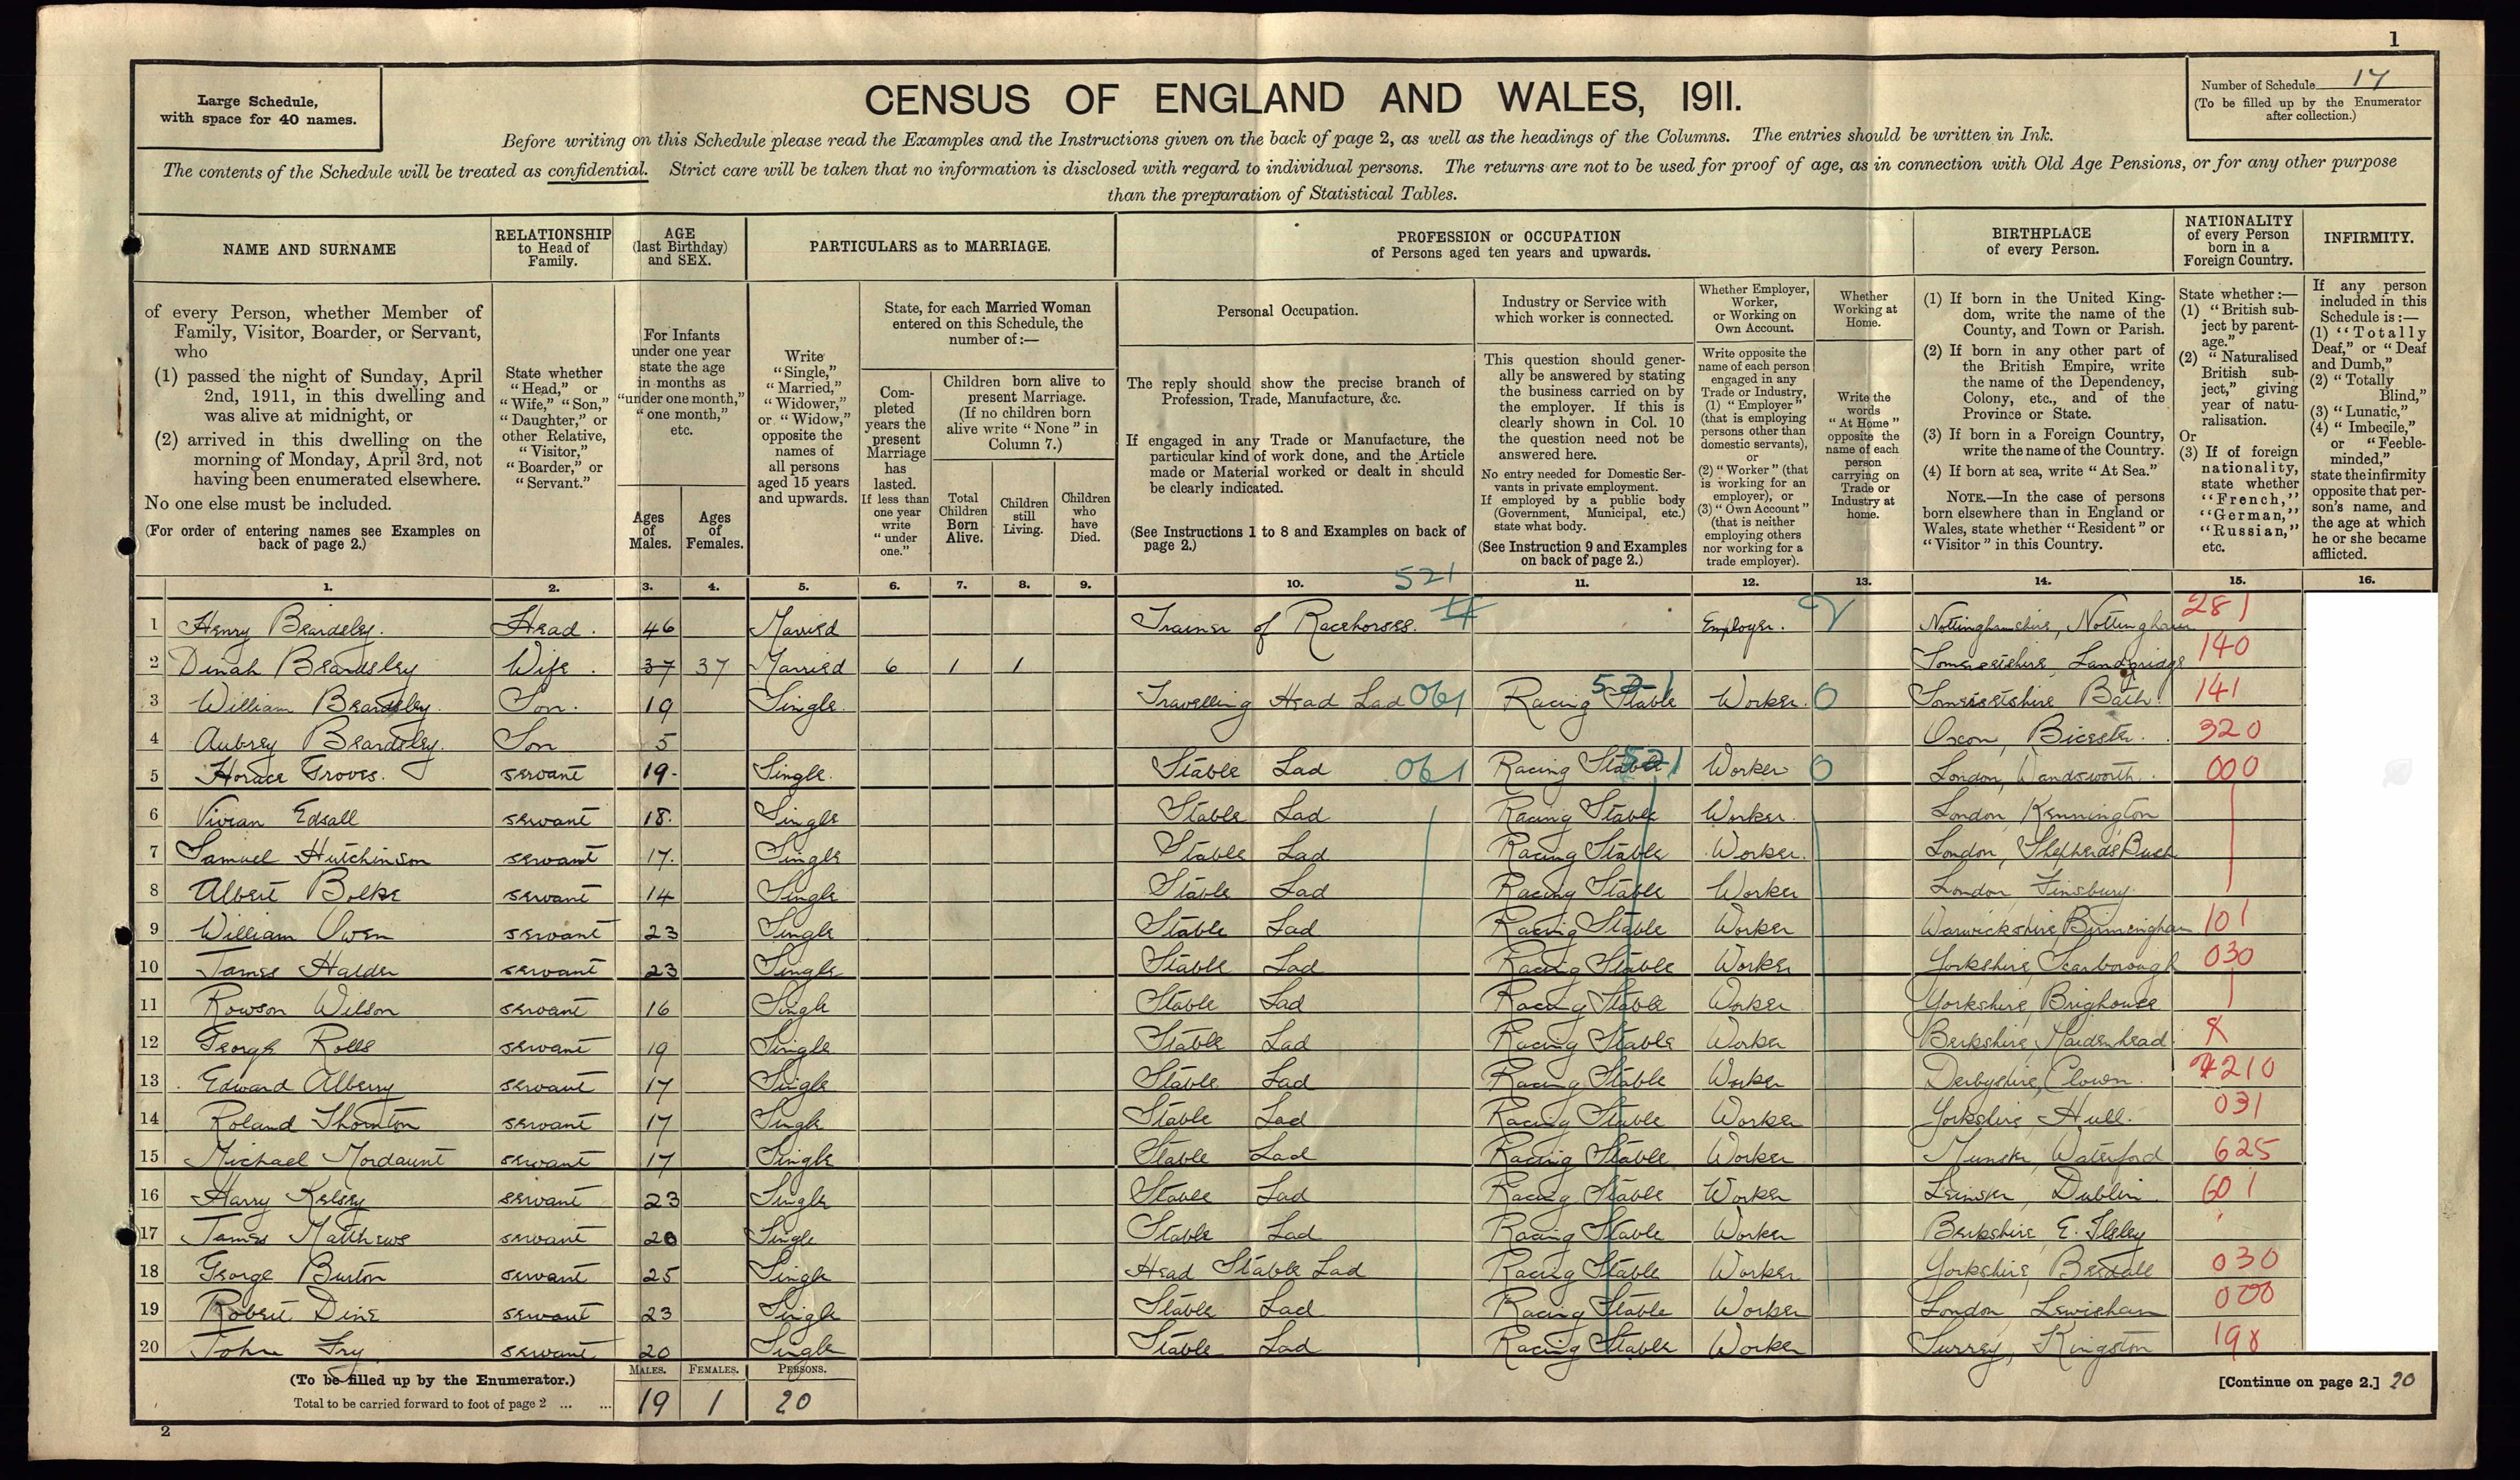 1
Large Schedule,
with space for 40 names.
CENSUS OF ENGLAND AND WALES, 1911.
Number of Schedule 17
(To be filled up by the Enumerator
after collection.)
Before writing on this Schedule please read the Examples and the Instructions given on the back of page 2, as well as the headings of the Columns. The entries should be written in Ink.
The contents of the Schedule will be treated as confidential. Strict care will be taken that no information is disclosed with regard to individual persons. The returns are not to be used for proof of age, as in connection with Old Age Pensions, or for any other purpose
than the preparation of Statistical Tables.
NAME AND SURNAME
of every Person, whether Member of
Family, Visitor, Boarder, or Servant,
who
(1) passed the night of Sunday, April
2nd, 1911, in this dwelling and
was alive at midnight, or
(2) arrived in this dwelling on the
morning of Monday, April 3rd, not
having been enumerated elsewhere.
No one else must be included.
(For order of entering names see Examples on
back of page 2.)
RELATIONSHIP
to Head of
Family.
State whether
"Head," or
"Wife," "Son,"
"Daughter," or
other Relative,
"Visitor,"
"Boarder," or
"Servant."
AGE
(last Birthday)
and SEX.
For Infants
under one year
state the age
in months as
"under one month,"
"one month,"
etc.
Ages
of
Males.
Ages
of
Females.
PARTICULARS as to MARRIAGE.
Write
"Single,"
"Married,"
"Widower,"
or "Widow,"
opposite the
names of
all persons
aged 15 years
and upwards.
State, for each Married Woman
entered on this Schedule, the
number of:—
Com-
pleted
years the
present
Marriage
has
lasted.
If less than
one year
write
"under
one."
Children born alive to
present Marriage.
(If no children born
alive write "None" in
Column 7.)
Total
Children
Born
Alive.
Children
still
Living.
Children
who
have
Died.
PROFESSION or OCCUPATION
of Persons aged ten years and upwards.
Personal Occupation.
The reply should show the precise branch of
Profession, Trade, Manufacture, &c.
If engaged in any Trade or Manufacture, the
particular kind of work done, and the Article
made or Material worked or dealt in should
be clearly indicated.
(See Instructions 1 to 8 and Examples on back of
page 2.)
Industry or Service with
which worker is connected.
This question should gener-
ally be answered by stating
the business carried on by
the employer. If this is
clearly shown in Col. 10
the question need not be
answered here.
No entry needed for Domestic Ser-
vants in private employment.
If employed by a public body
(Government, Municipal, etc.)
state what body.
(See Instruction 9 and Examples
on back of page 2.)
Whether Employer,
Worker,
or Working on
Own Account.
Write opposite the
name of each person
engaged in any
Trade or Industry,
(1) "Employer"
(that is employing
persons other than
domestic servants),
or
(2) "Worker" (that
is working for an
employer), or
(3) "Own Account"
(that is neither
employing others
nor working for a
trade employer).
Whether
Working at
Home.
Write the
words
"At Home"
opposite the
name of each
person
carrying on
Trade or
Industry at
home.
BIRTHPLACE
of every Person.
(1) If born in the United King-
dom, write the name of the
County, and Town or Parish.
(2) If born in any other part of
the British Empire, write
the name of the Dependency,
Colony, etc., and of the
Province or State.
(3) If born in a Foreign Country,
write the name of the Country.
(4) If born at sea, write "At Sea."
NOTE.—In the case of persons
born elsewhere than in England or
Wales, state whether "Resident" or
"Visitor" in this Country.
NATIONALITY
of every Person
born in a
Foreign Country.
State whether:—
(1) "British sub-
ject by parent-
age."
(2) "Naturalised
British sub-
ject," giving
year of natu-
ralisation.
Or
(3) If of foreign
nationality,
state whether
"French,"
"German,"
"Russian,"
etc.
INFIRMITY.
If any person
included in this
Schedule is:—
(1) "Totally
Deaf," or "Deaf
and Dumb,"
(2) "Totally
Blind,"
(3) "Lunatic,"
(4) "Imbecile,"
or "Feeble-
minded,"
state the infirmity
opposite that per-
son's name, and
the age at which
he or she became
afflicted.
1. 2. 3. 4. 5. 6. 7. 8. 9. 10. 521 11. 12. 13. 14. 15. 16.
1 Henry Beardsley. Head. 46 Married Trainer of Racehorses. Employer. Nottinghamshire, Nottingham 281
2 Dinah Beardsley Wife. 37 37 Married 6 1 1 Somersetshire Landridge 140
3 William Beardsley. Son. 19 Single. Travelling Head Lad 061 Racing Stable 521 Worker. 0 Somersetshire Bath. 141
4 Aubrey Beardsley. Son 5 Oxon, Bicester. 320
5 Horace Groves. servant 19. Single. Stable Lad 061 Racing Stable 521 Worker 0 London, Wandsworth. 000
6 Vivian Edsall servant 18. Single Stable Lad Racing Stable Worker. London, Kennington
7 Samuel Hutchinson servant 17. Single Stable Lad Racing Stable Worker. London, Shepherds Bush
8 Albert Bolke servant 14 Single Stable Lad Racing Stable Worker London Finsbury.
9 William Owen servant 23 Single Stable Lad Racing Stable Worker Warwickshire, Birmingham 101
10 James Halder servant 23 Single Stable Lad Racing Stable Worker Yorkshire, Scarborough 030
11 Rowson Wilson servant 16 Single Stable Lad Racing Stable Worker Yorkshire, Brighouse
12 George Rolls servant 19 Single Stable Lad Racing Stable Worker Berkshire, Maidenhead
13 Edward Alberry servant 17 Single Stable Lad Racing Stable Worker Derbyshire, Clown. 210
14 Roland Thornton servant 17 Single Stable Lad Racing Stable Worker Yorkshire, Hull. 031
15 Michael Mordaunt servant 17 Single Stable Lad Racing Stable Worker Munster, Waterford 625
16 Harry Kelsey servant 23 Single Stable Lad Racing Stable Worker Leinster, Dublin. 601
17 James Matthews servant 20 Single Stable Lad Racing Stable Worker Berkshire, E. Ilsley
18 George Burton servant 25 Single Head Stable Lad Racing Stable Worker Yorkshire, 030
19 Robert Dine servant 23 Single Stable Lad Racing Stable Worker London, Lewisham 000
20 John Fry servant 20 Single Stable Lad Racing Stable Worker Surrey, Kingston 198
(To be filled up by the Enumerator.)
Total to be carried forward to foot of page 2 ... ...
MALES. FEMALES. PERSONS.
19 1 20
[Continue on page 2.] 20
2